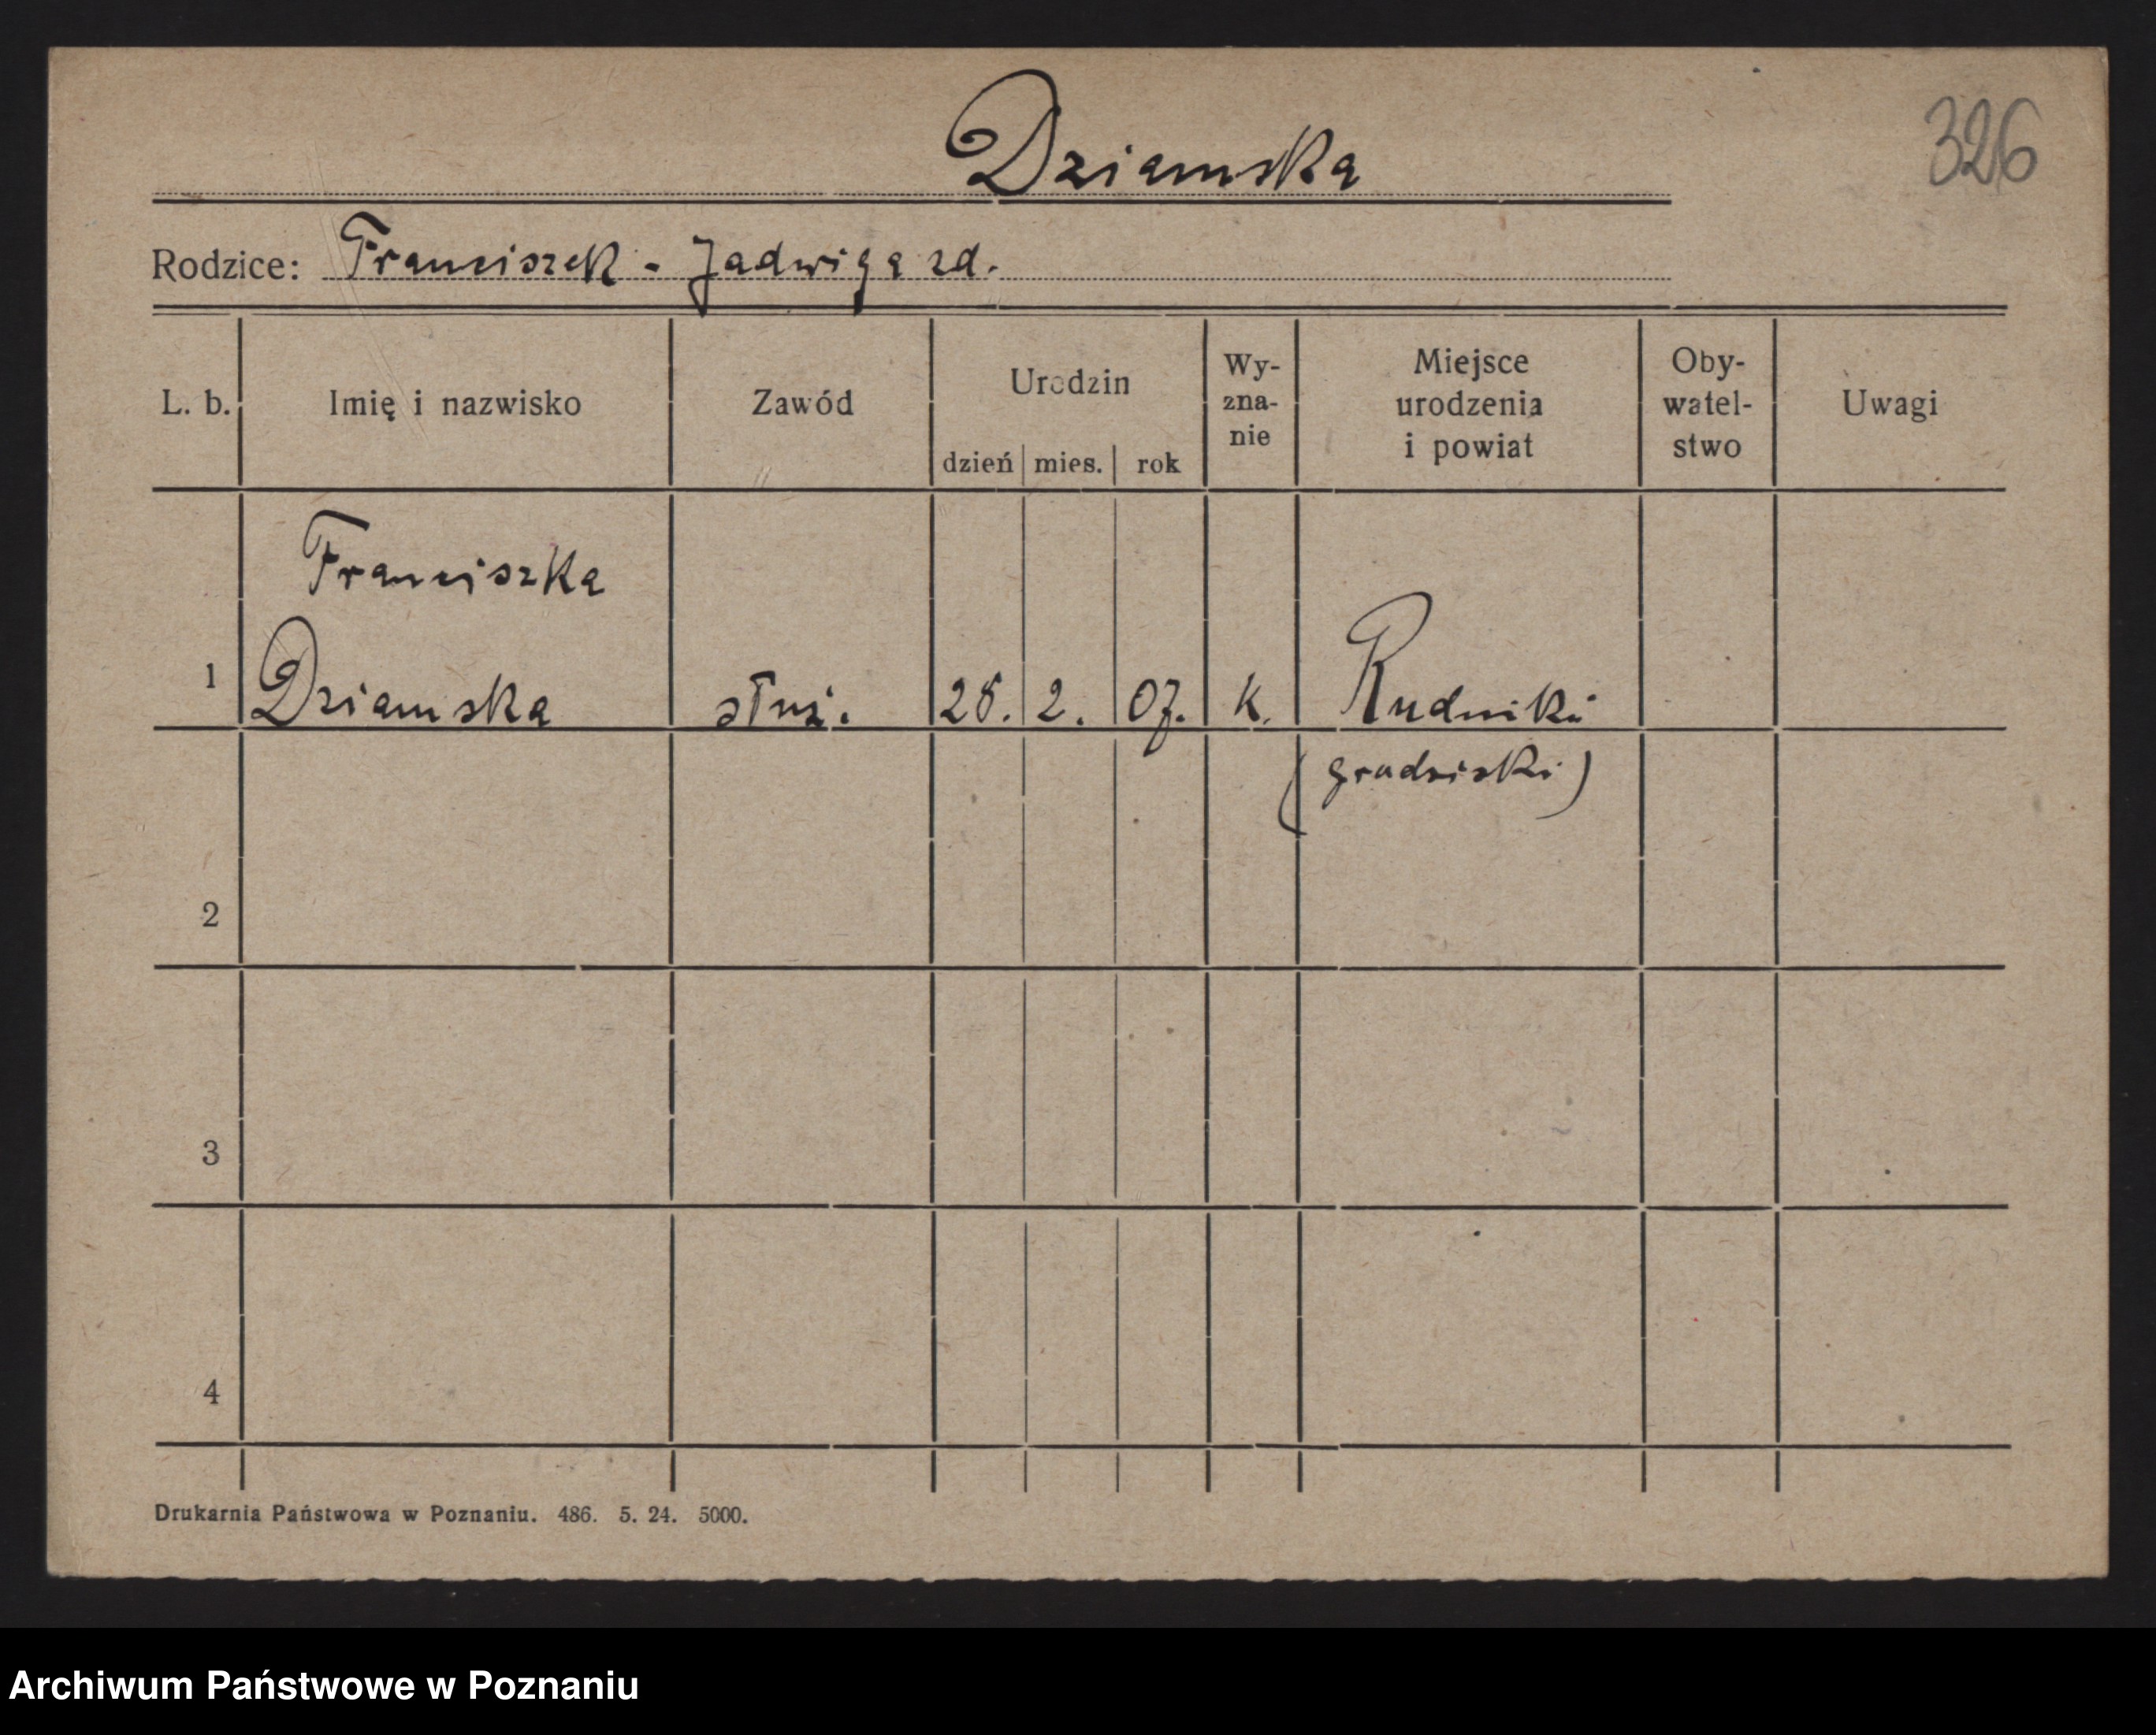 Dziamska
326
Rodzice: Franciszek - Jadwiga zd.
L. b.
Imię i nazwisko
Zawód
Urodzin
dzień
mies.
rok
Wy-
zna-
nie
Miejsce
urodzenia
i powiat
Oby-
watel-
stwo
Uwagi
Franciszka
1 Dziamska służ. 28. 2. 07. k. Rudniki
(grodziski)
2
3
4
Drukarnia Państwowa w Poznaniu. 486. 5. 24. 5000.
Archiwum Państwowe w Poznaniu